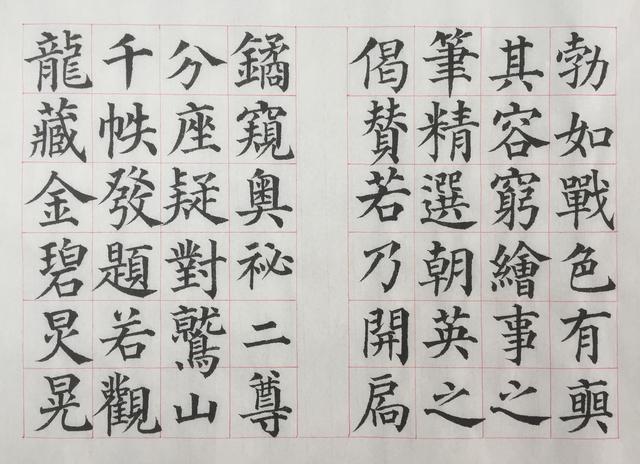 勃如戰色有奭
其容窮繪事之
筆精選朝英之
偈賛若乃開扃
鐍窺奧祕二尊
分座疑對鷲山
千帙發題若觀
龍藏金碧炅晃